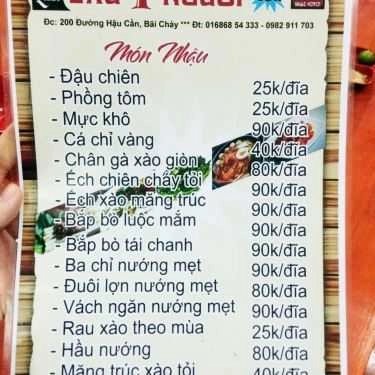 Đc: 200 Đường Hậu Cần, Bãi Cháy *** Đt: 016868 54 333 - 0982 911 703
Món Nhậu
- Đậu chiên 25k/đĩa
- Phồng tôm 25k/đĩa
- Mực khô 90k/đĩa
- Cá chỉ vàng 40k/đĩa
- Chân gà xào giòn 80k/đĩa
- Ếch chiên chảy tỏi 90k/đĩa
- Ếch xào măng trúc 90k/đĩa
- Bắp bò luộc mắm 90k/đĩa
- Bắp bò tái chanh 90k/đĩa
- Ba chỉ nướng mẹt 90k/đĩa
- Đuôi lợn nướng mẹt 80k/đĩa
- Vách ngăn nướng mẹt 90k/đĩa
- Rau xào theo mùa 25k/đĩa
- Hầu nướng 80k/đĩa
- Măng trúc xào tỏi 40k/đĩa